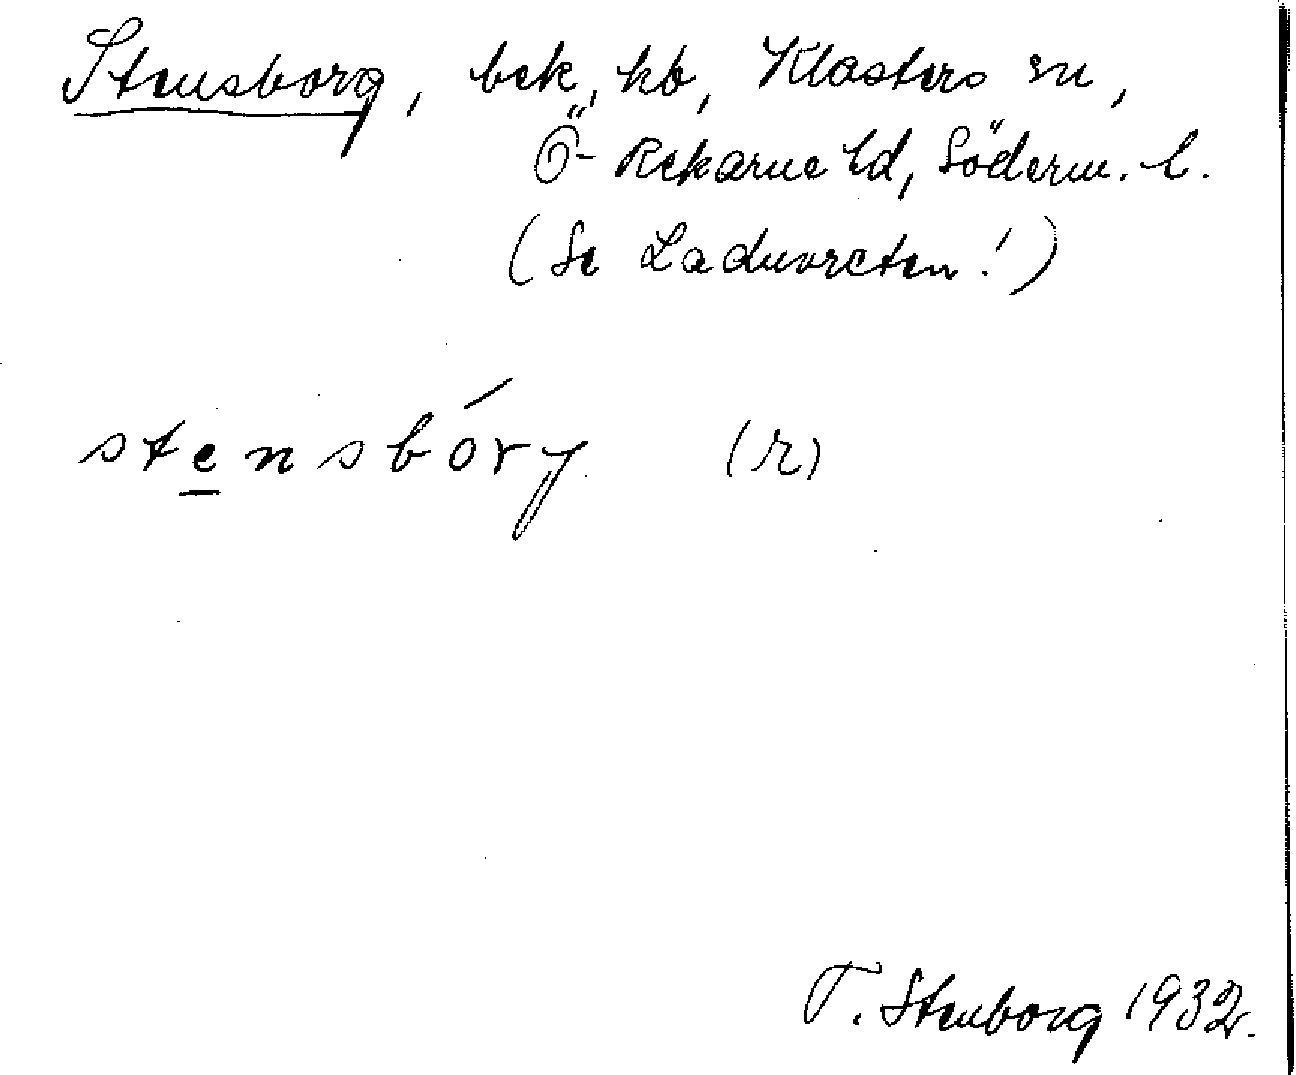 Stensborg, bek, kb, Klosters sn,
Ö-Rekarne hd, Söderm. l.
(Se Laduvreten!)
stensbórj (r)
T. Stenborg 1932.